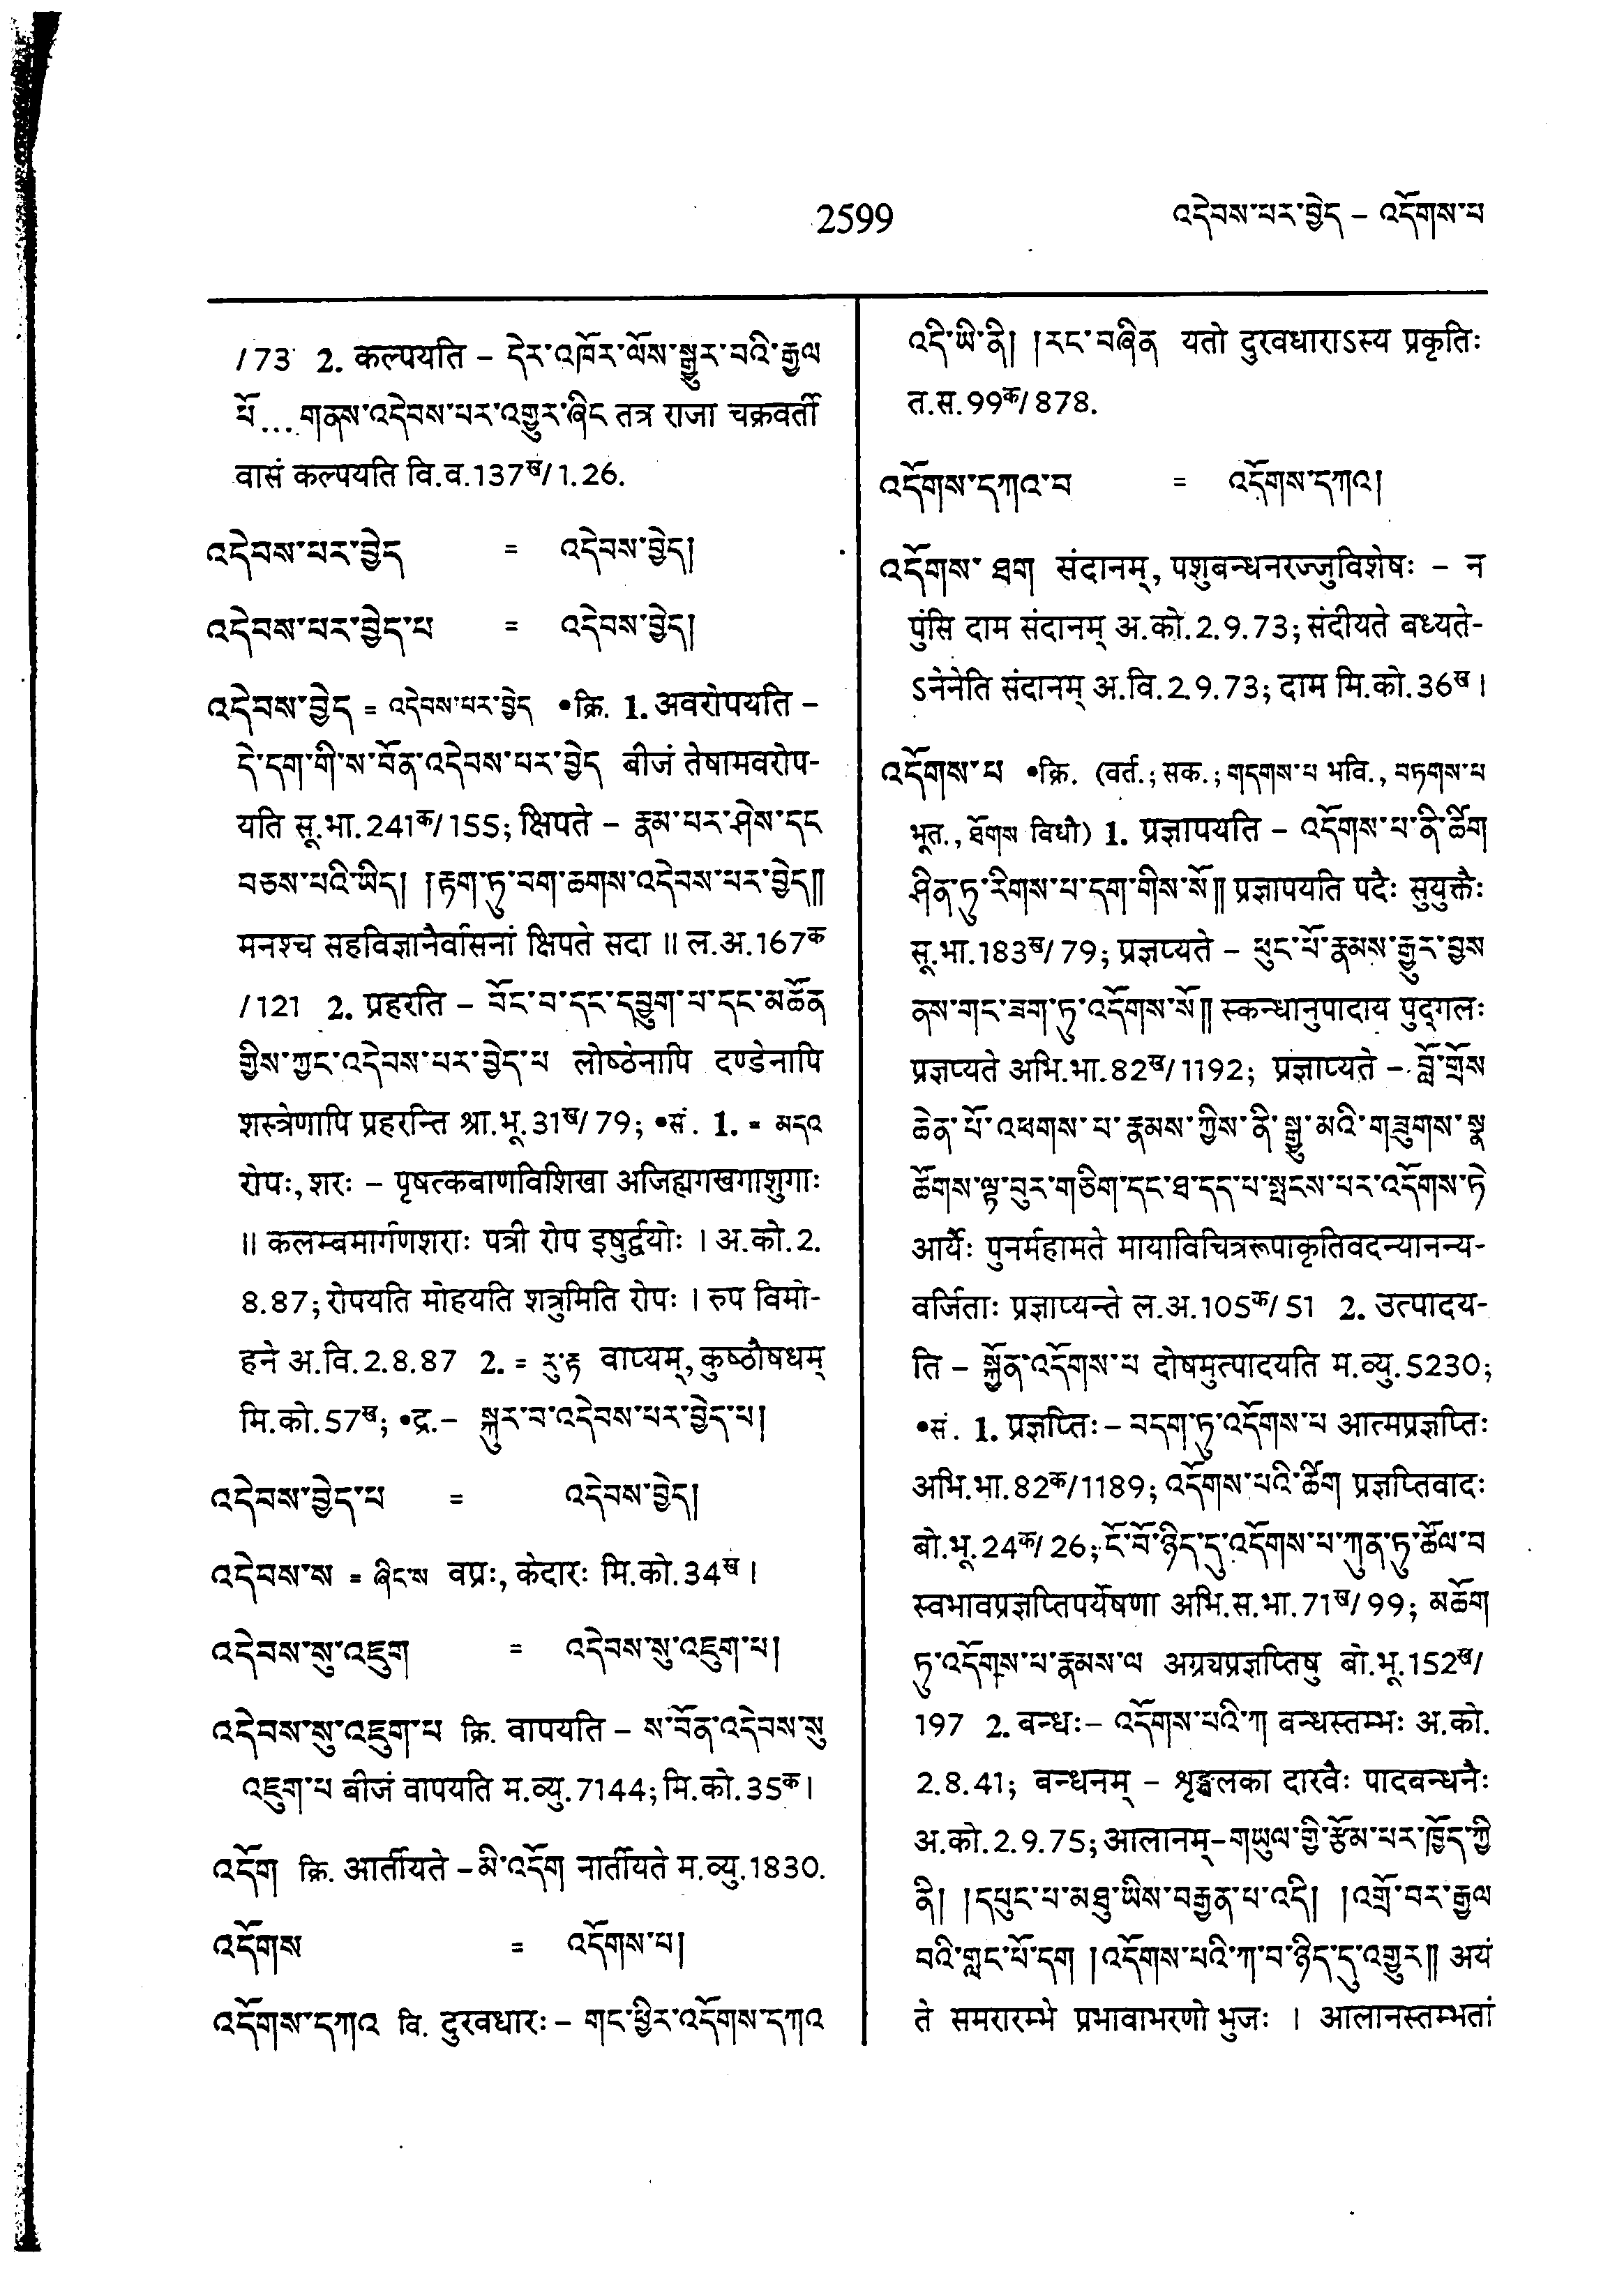 2599
འདེབས་པར་བྱེད – འདོགས་པ
/73 2. कल्पयति – དེར་འཁོར་ལོས་སྒྱུར་བའི་རྒྱལ
པོ...གནས་འདེབས་པར་འགྱུར་ཞིང तत्र राजा चक्रवर्ती
वासं कल्पयति वि.व.137ख/1.26.
འདེབས་པར་བྱེད = འདེབས་བྱེད།
འདེབས་པར་བྱེད་པ = འདེབས་བྱེད།
འདེབས་བྱེད = འདེབས་པར་བྱེད •क्रि. 1. अवरोपयति –
དེ་དག་གི་ས་བོན་འདེབས་པར་བྱེད बीजं तेषामवरोप-
यति सू.भा.241क/155; क्षिपते – རྣམ་པར་ཤེས་དང
བཅས་པའི་ཡིད། །རྟག་ཏུ་བག་ཆགས་འདེབས་པར་བྱེད༎
मनश्च सहविज्ञानैर्वासनां क्षिपते सदा ॥ ल.अ.167क
/121 2. प्रहरति – བོང་བ་དང་དབྱུག་པ་དང་མཚོན
གྱིས་ཀྱང་འདེབས་པར་བྱེད་པ लोष्ठेनापि दण्डेनापि
शस्त्रेणापि प्रहरन्ति श्रा.भू.31ख/79; •सं. 1. = མདའ
रोपः, शरः – पृषत्कबाणविशिखा अजिह्मगखगाशुगाः
॥ कलम्बमार्गणशराः पत्री रोप इषुर्द्वयोः । अ.को.2.
8.87; रोपयति मोहयति शत्रुमिति रोपः । रुप विमो-
हने अ.वि.2.8.87 2. = རུ་རྟ वाप्यम्, कुष्ठौषधम्
मि.को.57ख; •द्र.– སྐུར་བ་འདེབས་པར་བྱེད་པ།
འདེབས་བྱེད་པ = འདེབས་བྱེད།
འདེབས་ས = ཞིང་ས वप्रः, केदारः मि.को.34ख ।
འདེབས་སུ་འཇུག = འདེབས་སུ་འཇུག་པ།
འདེབས་སུ་འཇུག་པ क्रि. वापयति – ས་བོན་འདེབས་སུ
འཇུག་པ बीजं वापयति म.व्यु.7144; मि.को.35क।
འདོག क्रि. आर्तीयते –མི་འདོག नार्तीयते म.व्यु.1830.
འདོགས = འདོགས་པ།
འདོགས་དཀའ वि. दुरवधारः – གང་ཕྱིར་འདོགས་དཀའ
འདི་ཡི་ནི། །རང་བཞིན यतो दुरवधाराऽस्य प्रकृतिः
त.स.99क/878.
འདོགས་དཀའ་བ = འདོགས་དཀའ།
འདོགས་ཐག संदानम्, पशुबन्धनरज्जुविशेषः – न
पुंसि दाम संदानम् अ.को.2.9.73; संदीयते बध्यते-
ऽनेनेति संदानम् अ.वि.2.9.73; दाम मि.को.36ख ।
འདོགས་པ •क्रि. (वर्त.; सक.; གདགས་པ भवि., བཏགས་པ
भूत., ཐོགས विधौ) 1. प्रज्ञापयति – འདོགས་པ་ནི་ཚིག
ཤིན་ཏུ་རིགས་པ་དག་གིས་སོ༎ प्रज्ञापयति पदैः सुयुक्तैः
सू.भा.183ख/79; प्रज्ञप्यते – ཕུང་པོ་རྣམས་རྒྱུར་བྱས
ནས་གང་ཟག་ཏུ་འདོགས་སོ༎ स्कन्धानुपादाय पुद्गलः
प्रज्ञप्यते अभि.भा.82ख/1192; प्रज्ञाप्यते – བློ་གྲོས
ཆེན་པོ་འཕགས་པ་རྣམས་ཀྱིས་ནི་སྒྱུ་མའི་གཟུགས་སྣ
ཚོགས་ལྟ་བུར་གཅིག་དང་ཐ་དད་པ་སྤངས་པར་འདོགས་ཏེ
आर्यैः पुनर्महामते मायाविचित्ररूपाकृतिवदन्यानन्य-
वर्जिताः प्रज्ञाप्यन्ते ल.अ.105क/51 2. उत्पादय-
ति – སྐྱོན་འདོགས་པ दोषमुत्पादयति म.व्यु.5230;
•सं. 1. प्रज्ञप्तिः – བདག་ཏུ་འདོགས་པ आत्मप्रज्ञप्तिः
अभि.भा.82क/1189; འདོགས་པའི་ཚིག प्रज्ञप्तिवादः
बो.भू.24क/26; ངོ་བོ་ཉིད་དུ་འདོགས་པ་ཀུན་ཏུ་ཚོལ་བ
स्वभावप्रज्ञप्तिपर्येषणा अभि.स.भा.71ख/99; མཆོག
ཏུ་འདོགས་པ་རྣམས་ལ अग्र्यप्रज्ञप्तिषु बो.भू.152ख/
197 2. बन्धः– འདོགས་པའི་ཀ बन्धस्तम्भः अ.को.
2.8.41; बन्धनम् – शृङ्खलका दारवैः पादबन्धनैः
अ.को.2.9.75; आलानम्–གཡུལ་གྱི་རྩོམ་པར་ཁྱོད་ཀྱི
ནི། །དཔུང་པ་མཐུ་ཡིས་བརྒྱན་པ་འདི། །འགྲོ་བར་རྒྱལ
བའི་གླང་པོ་དག །འདོགས་པའི་ཀ་བ་ཉིད་དུ་འགྱུར༎ अयं
ते समरारम्भे प्रभावाभरणो भुजः । आलानस्तम्भतां